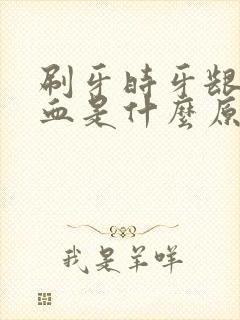 刷牙时牙龈
血是什麼原
我是羊咩